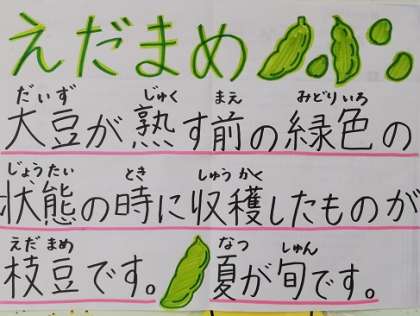 えだまめ
だいず じゅく まえ みどりいろ
大豆が熟す前の緑色の
じょうたい とき しゅうかく
状態の時に収穫したものが
えだ まめ なつ しゅん
枝豆です。夏が旬です。